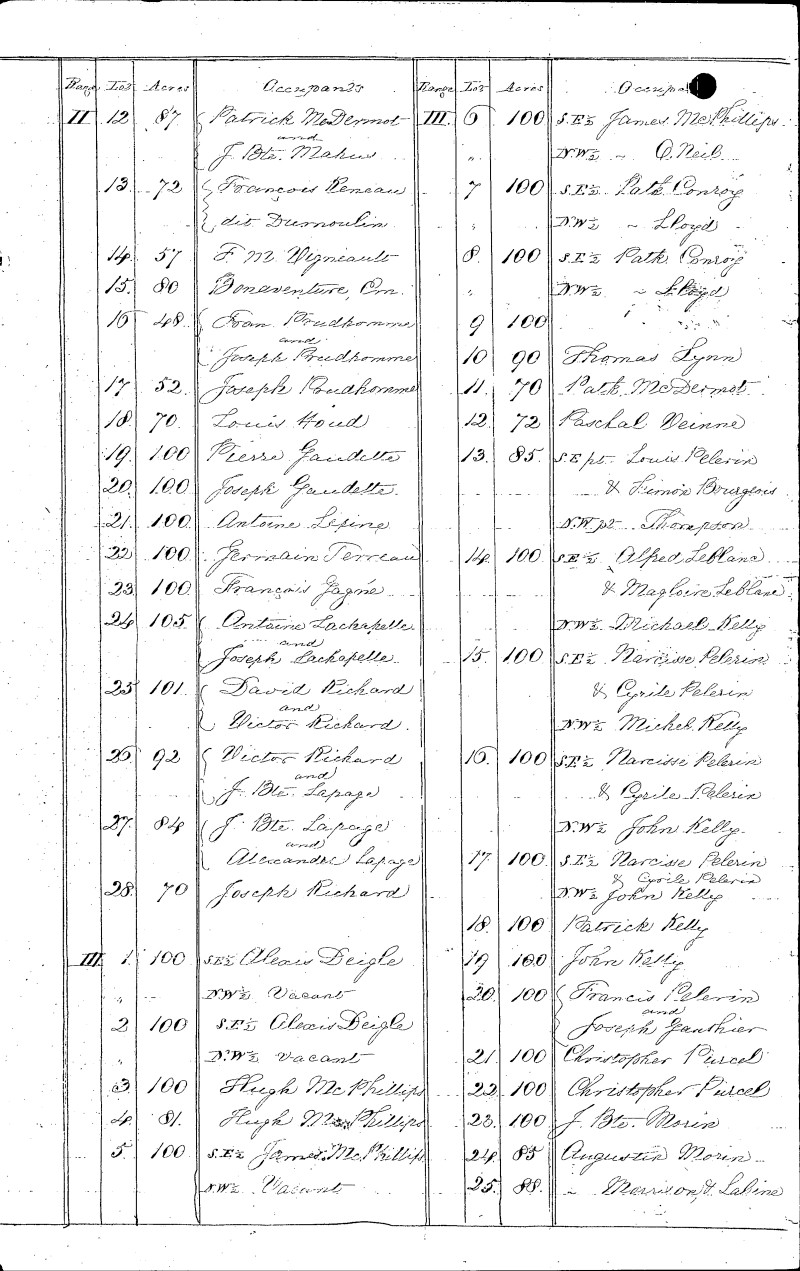 Range Lot Acres Occupants
II 12 87 Patrick McDermot
and
J. Bte. Mahus
13. 72 François Reneau
dit Dumoulin
14 57 F. M. Vigneault
15. 80 Bonaventure, Cm.
16 48 Fran. Prudhomme
and
Joseph Prudhomme
17 52 Joseph Prudhomme
18 70. Louis Houd
19. 100 Pierre Gaudette
20. 100 Joseph Gaudette
21. 100 Antoine Lepine
22 100 Germain Terreau
23. 100 François Gagné
24 105 Antoine Lachapelle
and
Joseph Lachapelle
25 101 David Richard
and
Victor Richard.
26 92 Victor Richard
and
J. Bte. Lapage
27. 84 J. Bte. Lapage
and
Alexandre Lapage
28. 70 Joseph Richard
III 1. 100 S.E½ Alexis Deigle
" N.W½ Vacant
2 100 S.E½ Alexis Deigle
" N.W½ Vacant
3 100 Hugh McPhillips
4. 81. Hugh McPhillips
5. 100 S.E½ James McPhillips
N.W½ Vacant
Range Lot Acres Occupa
III. 6 100 S.E½ James McPhillips
" N.W½ " O.Neil
7 100 S.E½ Patk Conroy
" N.W½ " Lloyd
8. 100 S.E½ Patk Conroy
" N.W½ " Lloyd
9 100
10 90 Thomas Lynn
11. 70 Patk McDermot
12. 72 Paschal Veinne
13. 85. S.E pt. Louis Pelerin
& Simon Bourgeois
N.W. pt Thompson
14. 100 S.E½ Alfred Leblanc
& Magloire Leblanc
N.W½ Michael Kelly
15 100 S.E½ Narcisse Pelerin
& Cyrile Pelerin
N.W½ Michel Kelly
16. 100 S.E½ Narcisse Pelerin
& Cyrile Pelerin
N.W½ John Kelly.
17 100 S.E½ Narcisse Pelerin
& Cyrile Pelerin
N.W½ John Kelly
18. 100 Patrick Kelly
19 100 John Kelly
20. 100 Francis Pelerin
and
Joseph Gauthier
21. 100 Christopher Purcel
22 100 Christopher Purcel
23. 100 J. Bte. Morin
24. 85 Augustin Morin
25. 88. " Morrison, & Labine